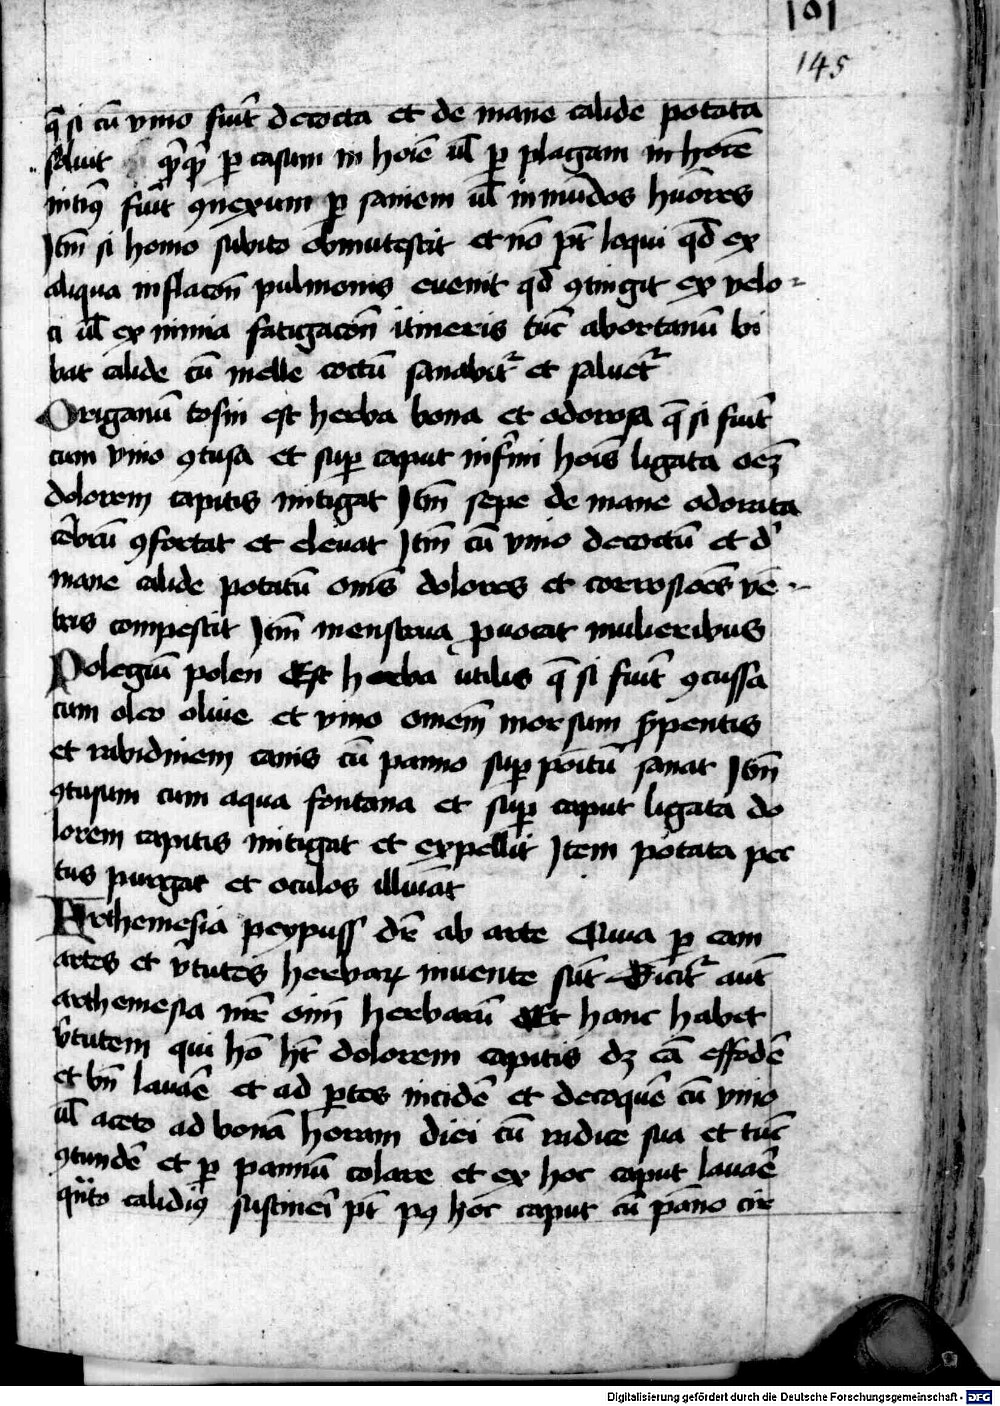 191
145
q̄ si cū vino fiu̇t decocta et de mane calide potata
soluit q̄cq̄ p casum in hoīe ul̄ p plagam in hoīe
intiꝰ fiūt ꝯnexum p saniem ul̄ inmūdos huōres
Itm̄ si homo subito obmutescit et nō pt̄ loqui qd̄ ex
aliqua inflacōn pulmonis evenit qd̄ ꝯtingit ex velo-
ci ul̄ ex nimia fatigacōn itineris tūc abortanū bi
bat calide cū melle coctū sanabitᷣ et saluetᷣ
Origanū tosin est herba bona et odorosa q̄ si fiūt
cum vino ꝯtusa et sup caput infirmi hoīs ligata oēꝫ
dolorem capitis mitigat Itm̄ sepe de mane odorata
cēbrū ꝯfortat et elevat Itm̄ cū vino decoctū et d'
mane calide potatū om̄s dolores et corrosiōes vē-
tris compescit Itm̄ menstrua ꝓuocat mulieribus
Polegiū polen Est herba utilis q̄ si fiūt ꝯcussa
cum oleo olive et vino omēm morsum serpentis
et rabidinem canis cū panno sup poītū sanat Itm̄
ꝯtusum cum aqua fontana et sup caput ligata do
lorem capitis mitigat et expellit Item potata pec
tus purgat et oculos illuīat
Arthemesia peypuss dr̄ ab arte Quia p eam
artes et v̄tutes herbaꝝ invente sūt Dicitᷣ aut̄
arthemesia mr̄ oīm herbarū Et hanc habet
v̄tutem qui hō ht̄ dolorem capitis dꝫ eā effodē
et bn̄ lavaē et ad ptes incidē et decoquē cū vino
ul̄ aceto ad bonā horam diei cū radice sua et tūc
ꝯtundē et p pannū colare et ex hoc caput lavaē
qn̄to calidiꝰ sustinēi pt̄ pꝰ hoc caput cū pāno cir
Digitalisierung gefördert durch die Deutsche Forschungsgemeinschaft - DFG